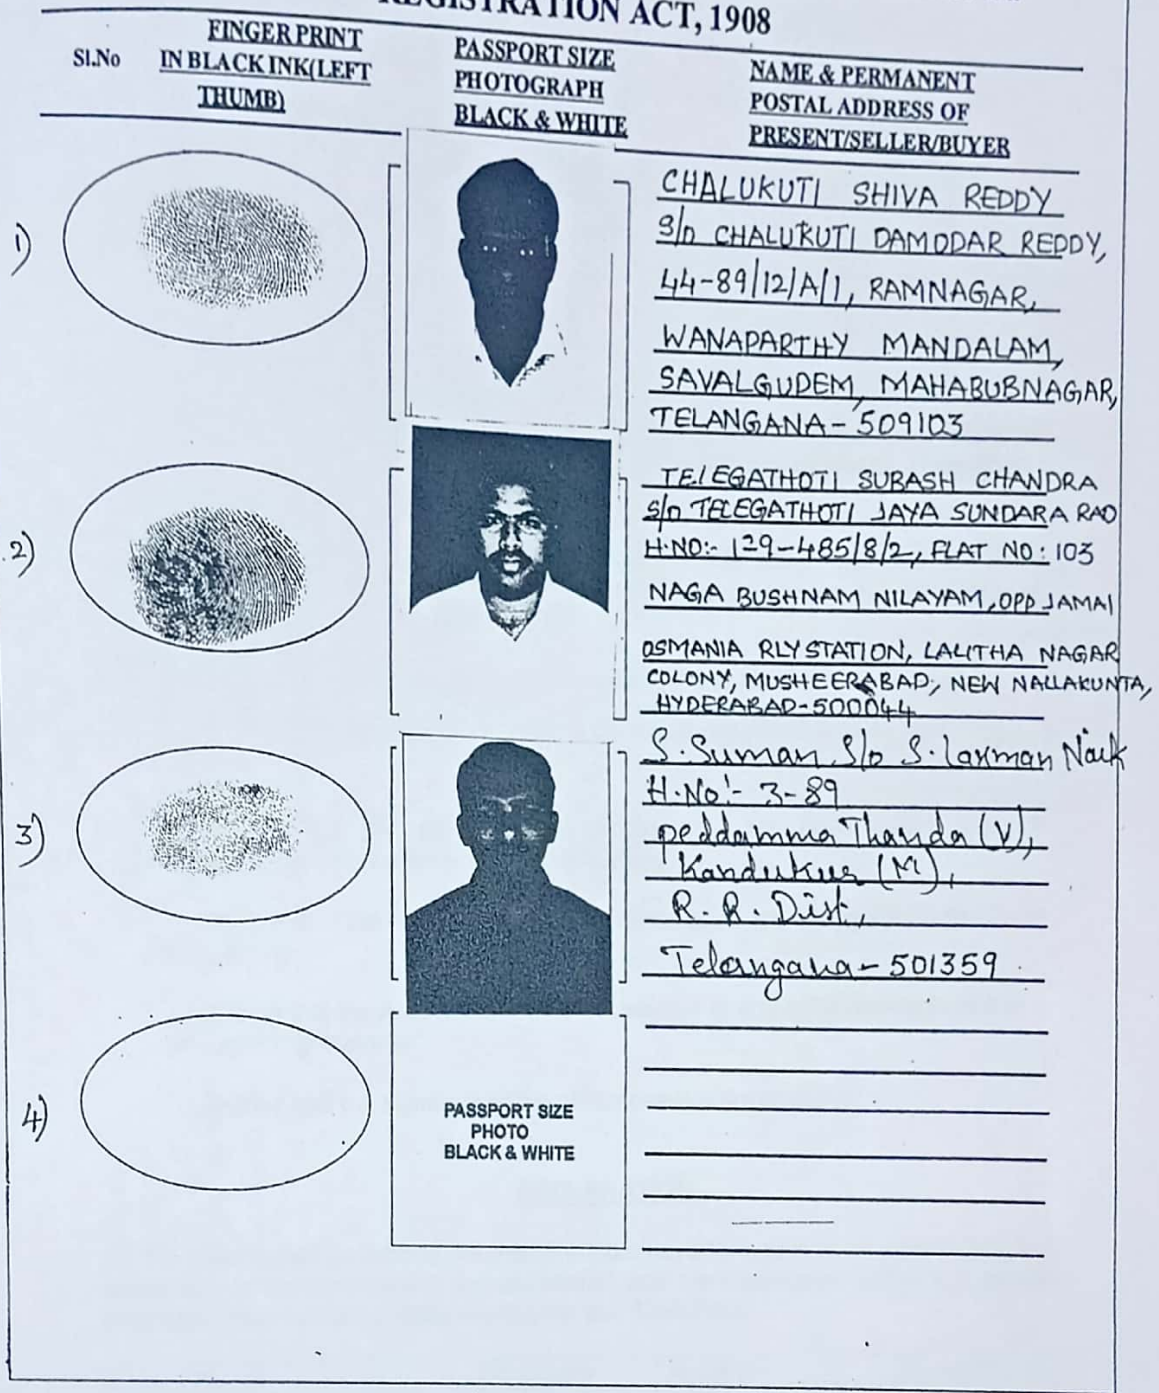 REGISTRATION ACT, 1908
Sl.No
FINGER PRINT
IN BLACK INK(LEFT
THUMB)
PASSPORT SIZE
PHOTOGRAPH
BLACK & WHITE
NAME & PERMANENT
POSTAL ADDRESS OF
PRESENT/SELLER/BUYER
1)
CHALUKUTI SHIVA REDDY
S/o CHALUKUTI DAMODAR REDDY,
44-89/12/A/1, RAMNAGAR,
WANAPARTHY MANDALAM,
SAVALGUDEM, MAHABUBNAGAR,
TELANGANA - 509103
2)
TELEGATHOTI SUBASH CHANDRA
S/o TELEGATHOTI JAYA SUNDARA RAO
H.NO:- 129-485/8/2, FLAT NO: 103
NAGA BUSHNAM NILAYAM, OPP JAMAI
OSMANIA RLY STATION, LALITHA NAGAR
COLONY, MUSHEERABAD, NEW NALLAKUNTA,
HYDERABAD-500044
3)
S. Suman S/o S. Laxman Naik
H.No:- 3-89
peddamma Thanda (V),
Kandukur (M),
R. R. Dist,
Telangana - 501359
4)
PASSPORT SIZE
PHOTO
BLACK & WHITE